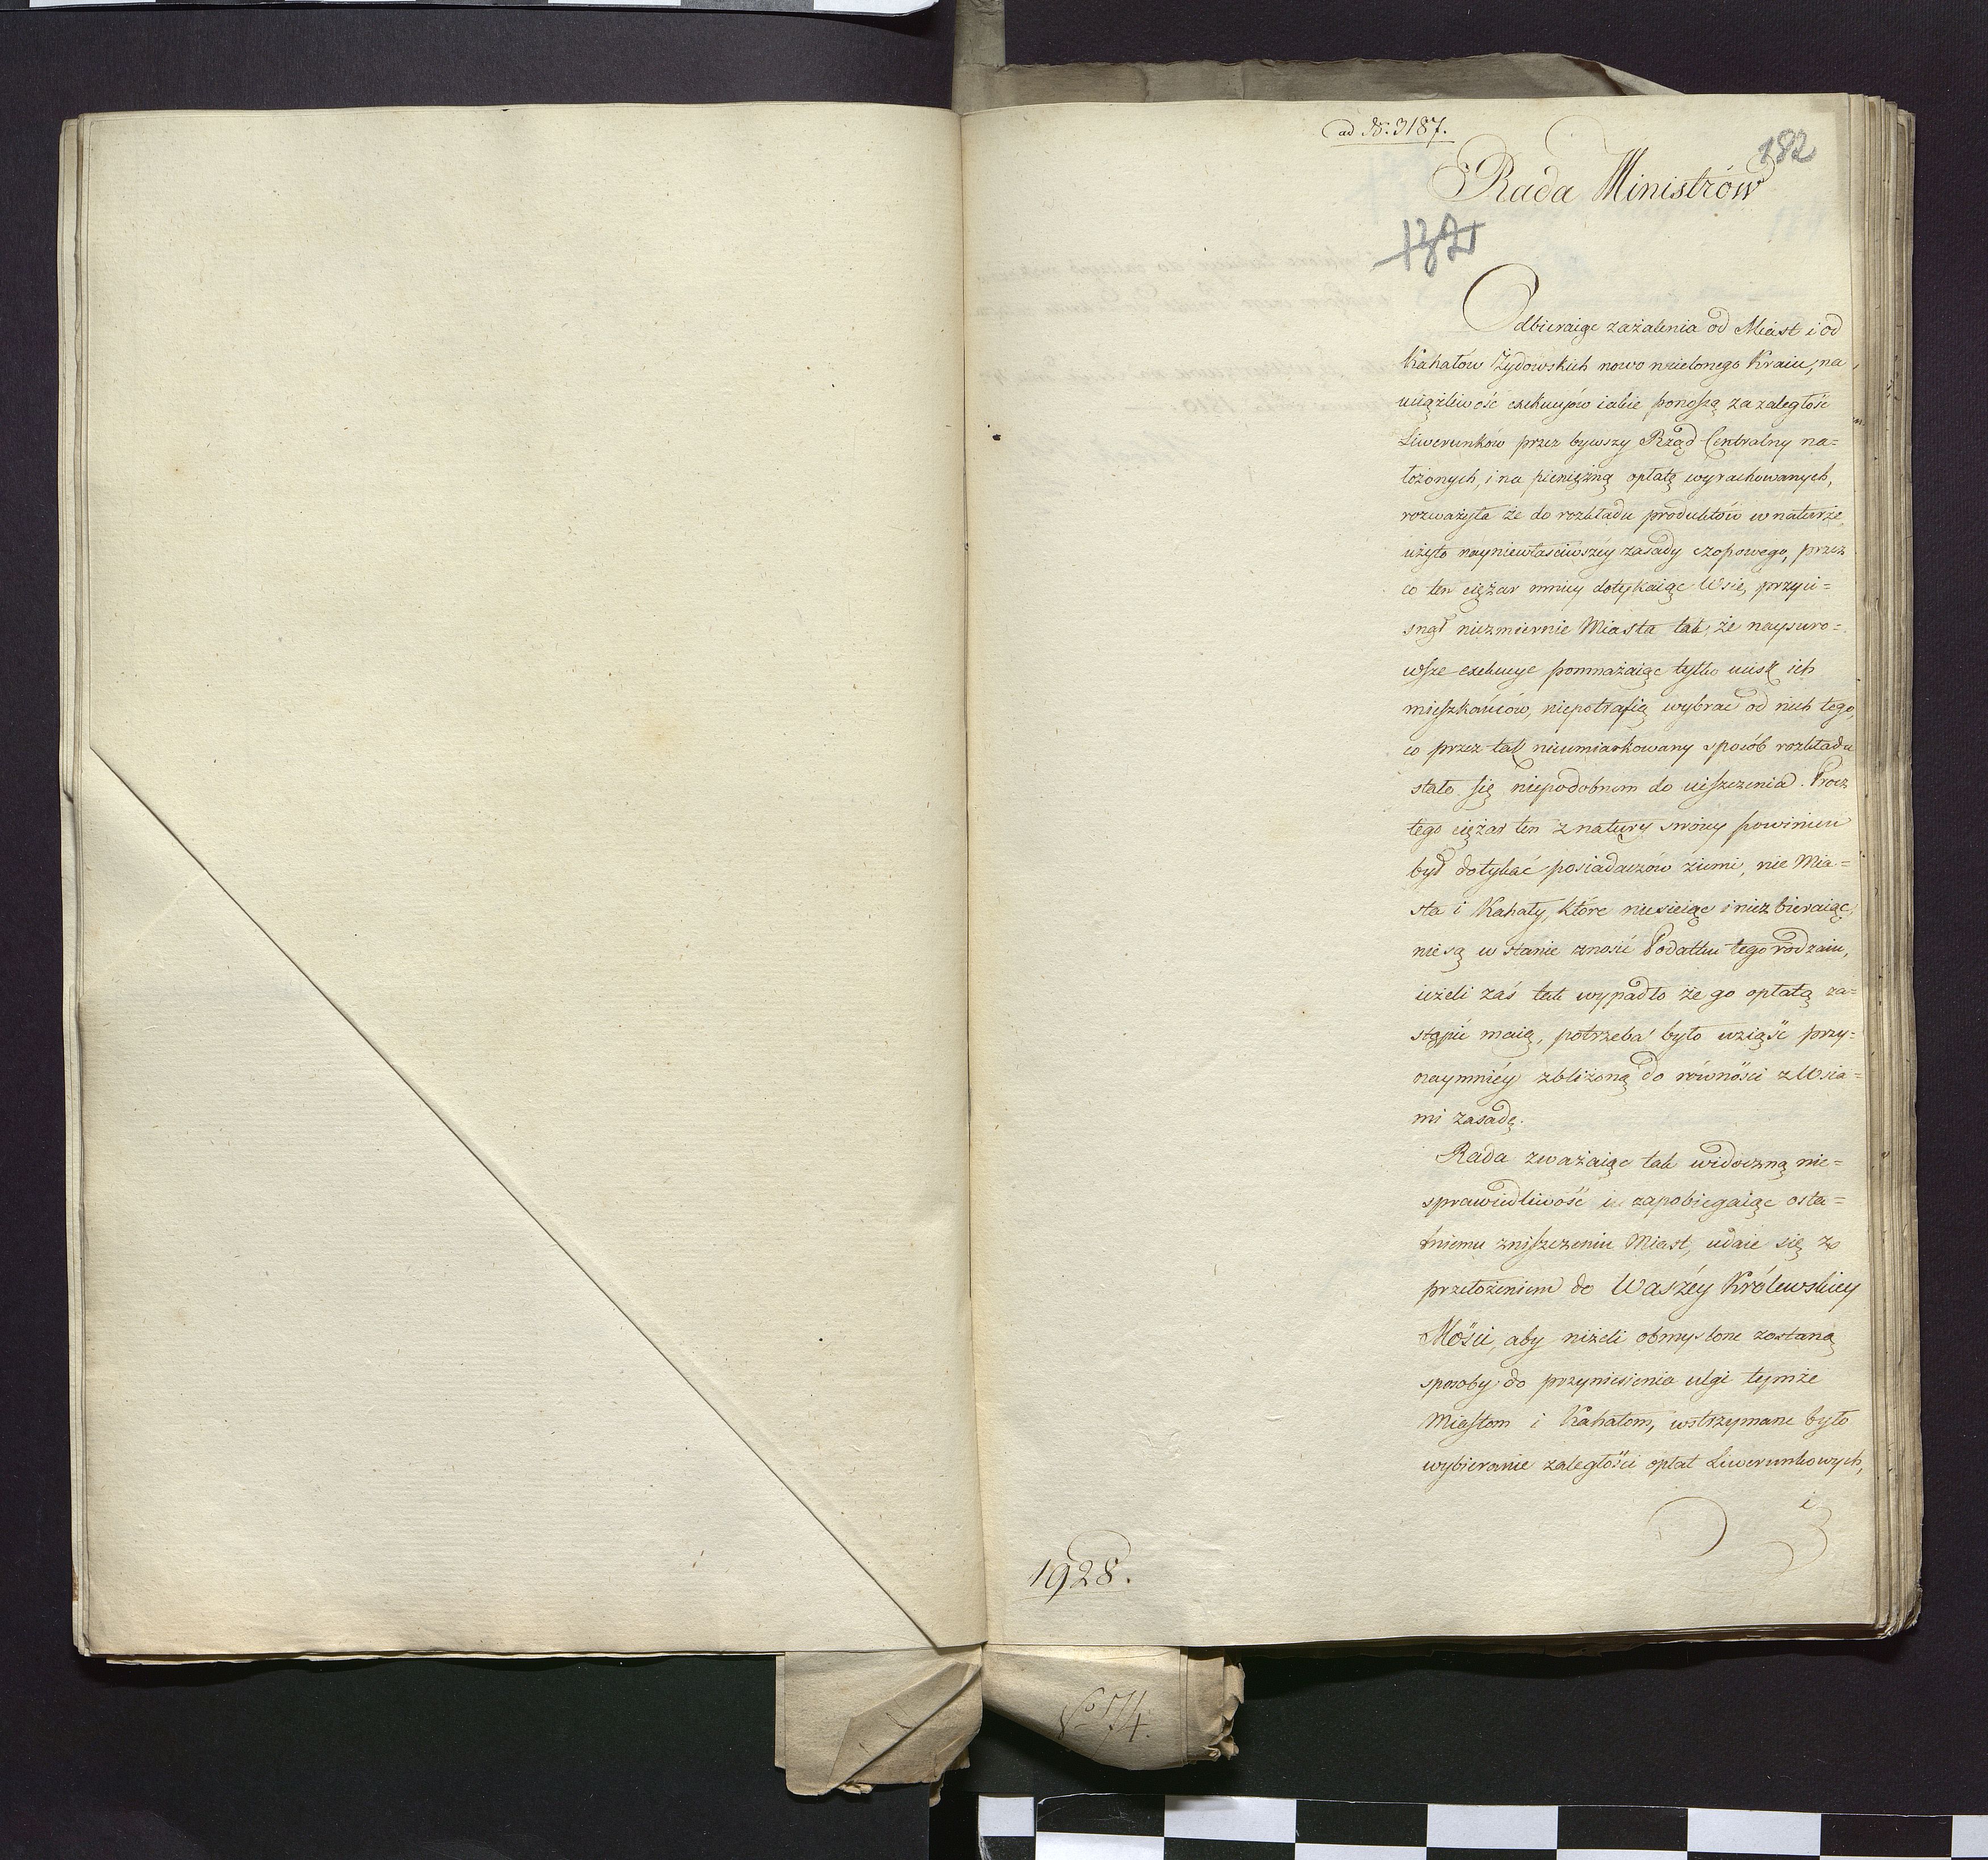 ad No: 3187.
182
Rada Ministrów
Odbieraiąc zażalenia od Miast i od
Kahałów Żydowskich nowo wcielonego Kraiu, na
uciążliwość exekucyów iakie ponoszą za zaległość
Liwerunków przez bywszy Rząd Centralny na=
łożonych, i na pieniężną opłatę wyrachowanych,
rozważyła że do rozkładu produktów w naturze,
użyto nayniewłaściwszéy zasady czopowego, przez
co ten ciężar mniey dotykaiąc Wsie, przyci=
snął niezmiernie Miasta tak, że naysuro=
wsze exekucye pomnażaiąc tylko ucisk ich
mieszkańców, niepotrafią wybrać od nich tego,
co przez tak nieumiarkowany sposób rozkładu
stało się niepodobnem do uiszczenia. Procz
tego ciężar ten z natury swoiey powinien
był dotykać posiadaczów ziemi, nie Mia=
sta i Kahały, które niesieiąc i niezbieraiąc,
nie są w stanie znosić Podatku tego rodzaiu,
ieżeli zaś tak wypadło że go opłatą za=
stąpić maią, potrzeba było wziąść przy=
naymniéy zbliżoną do równości z Wsia=
mi zasadę.
Rada zważaiąc tak widoczną nie=
sprawiedliwość i zapobiegaiąc osta=
tniemu zniszczeniu Miast, udaie się ze
przełożeniem do Waszéy Królewskiey
Mości, aby niżeli obmyslone zostaną
sposoby do przyniesienia ulgi tymże
Miastom i Kahałom, wstrzymane było
wybieranie zaległości opłat Liwerunkowych,
i
1928.
No 174.